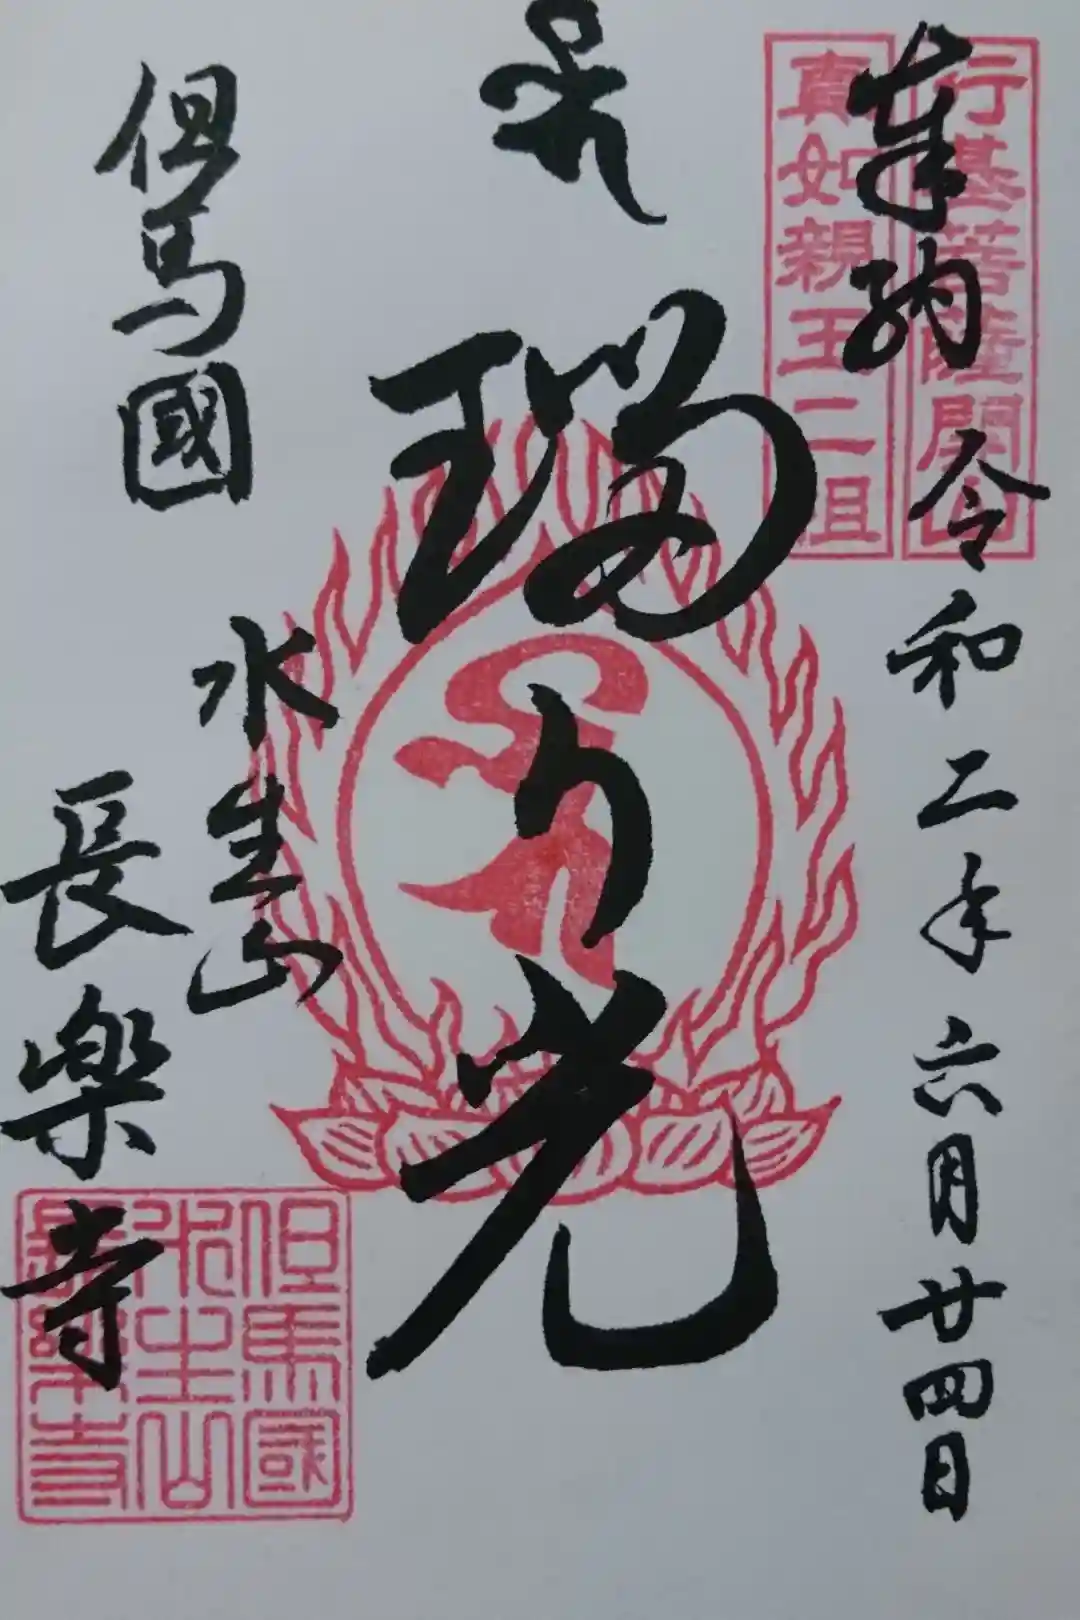 行基菩薩開山
真如親王二祖
奉納
令和二年六月廿四日
瑠り光
但馬國
水生山
長樂寺
但馬國
水生山
長樂寺